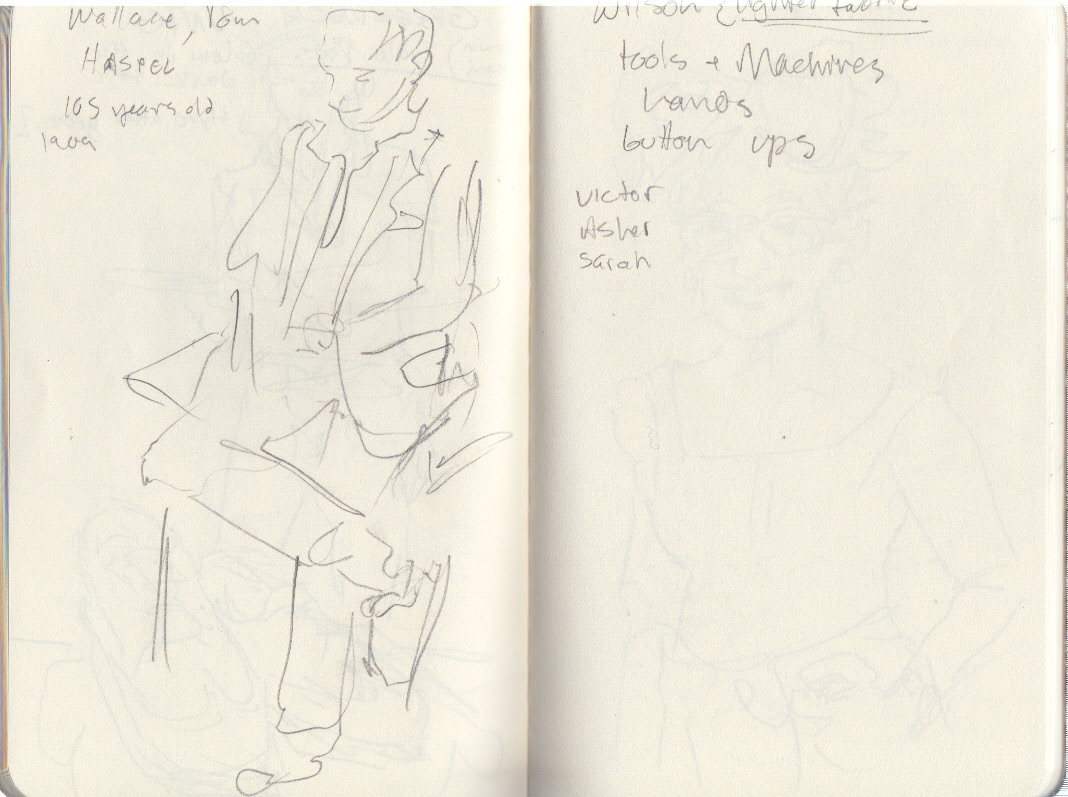 Wallace, Tom
HASPEL
105 years old
1909
Wilson lighter fabric
tools + Machines
hands
button ups
victor
Asher
sarah